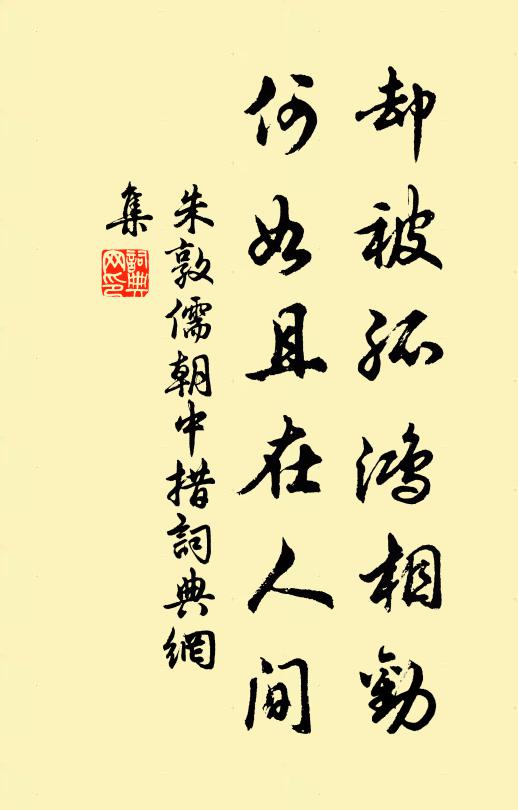 却被孤鸿相勸
何如且在人間
朱敦儒朝中措詞典網
集
詞典
网印